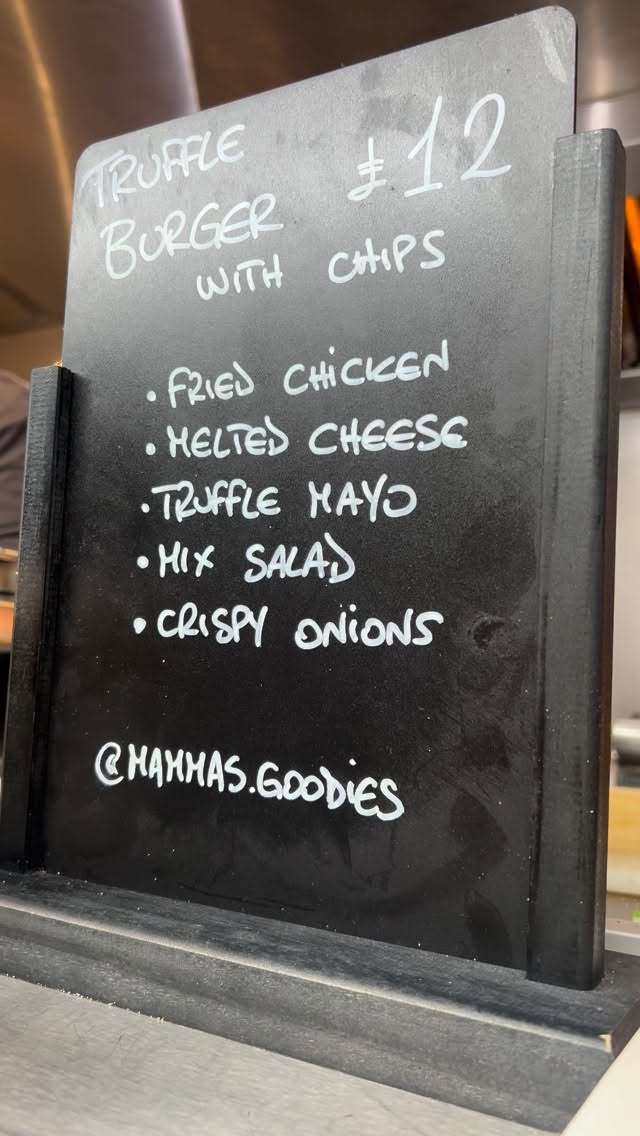 TRUFFLE £12
BURGER
WITH CHIPS
• FRIED CHICKEN
• MELTED CHEESE
• TRUFFLE MAYO
• MIX SALAD
• CRISPY ONIONS
@MAMMAS.GOODIES